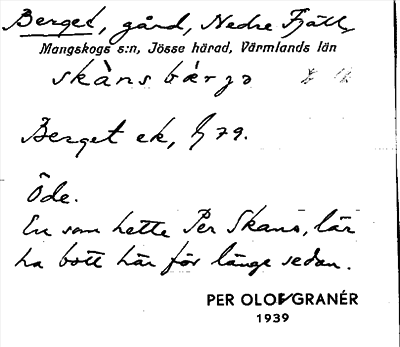 Berget, gård, Nedre Fjäll,
Mangskogs s:n, Jösse härad, Värmlands län
skànsbǽrjə
Berget ek, G 79.
Öde.
En som hette Per Skans, lär
ha bott här för länge sedan.
PER OLOF GRANÉR
1939